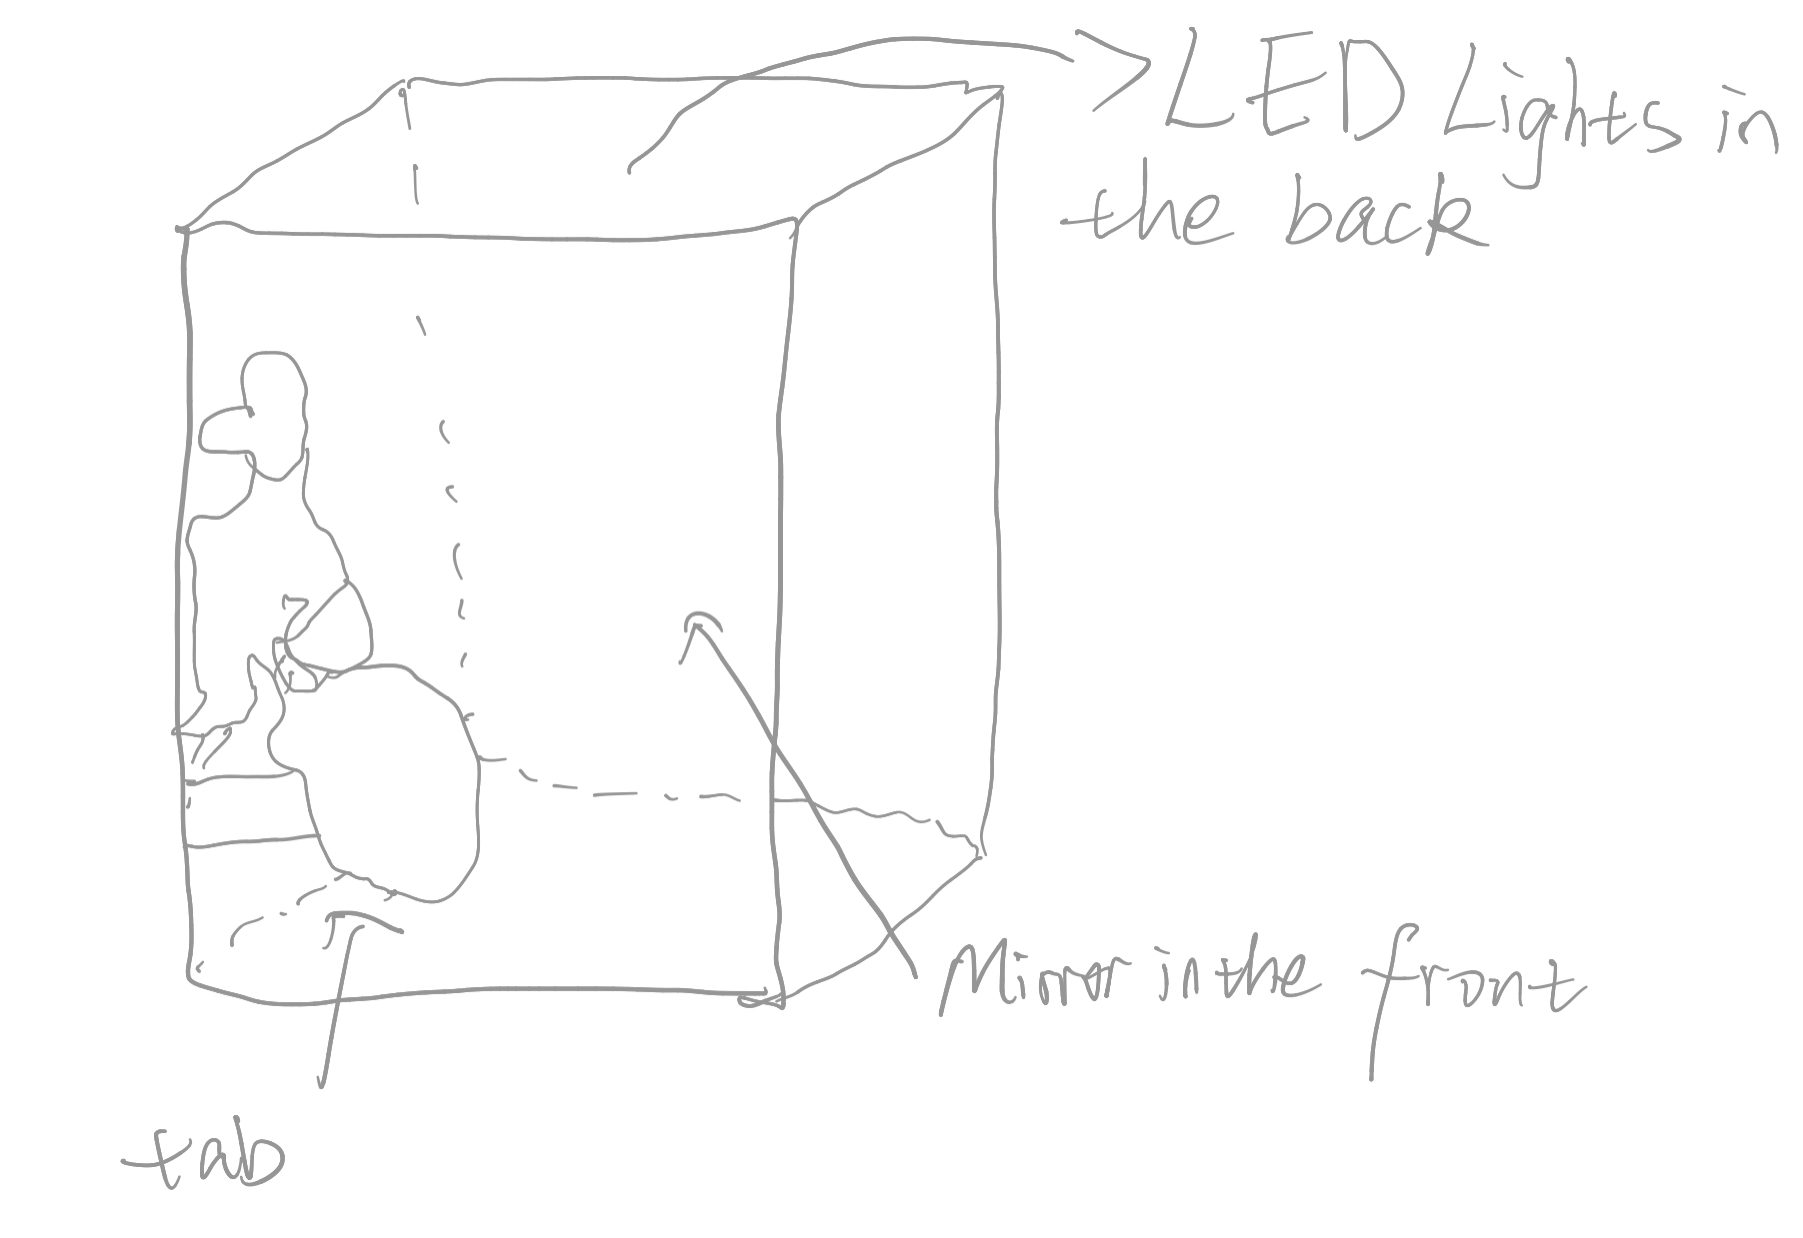 LED Lights in
the back
Mirror in the front
tab